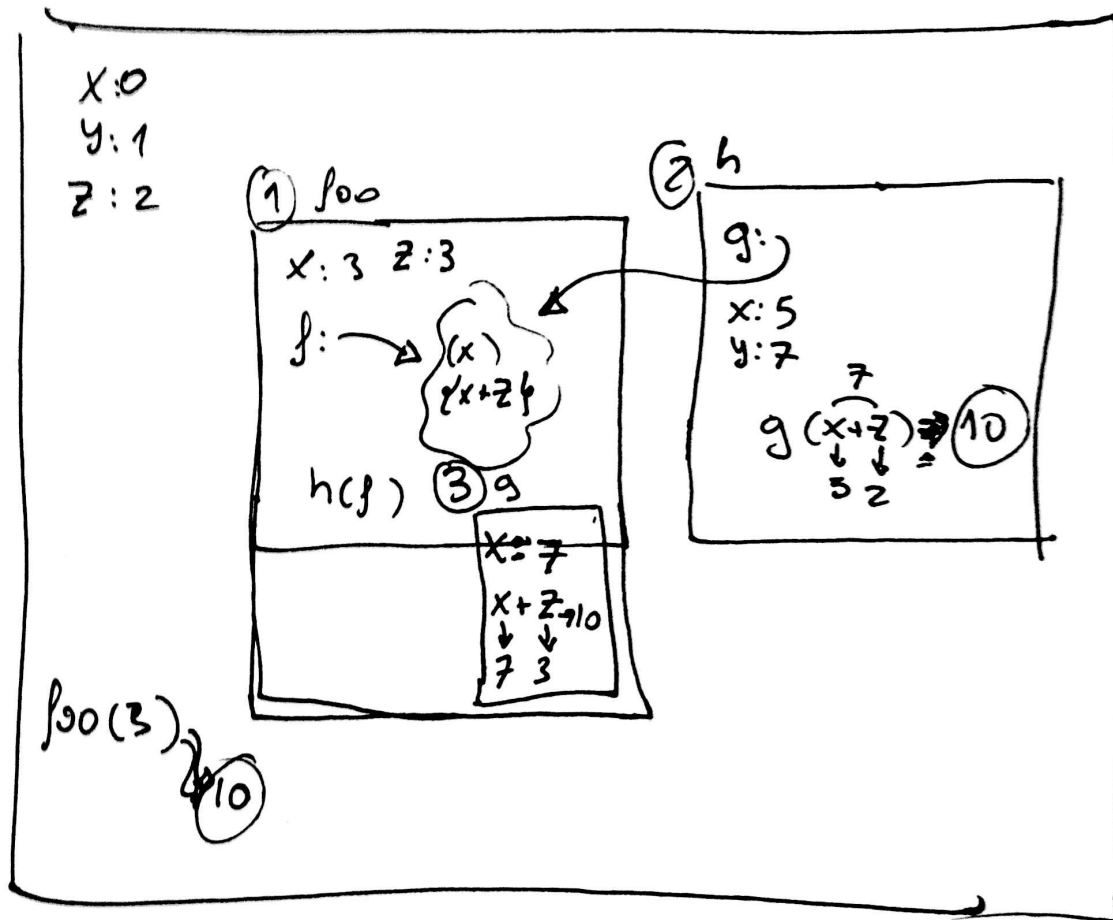 x:0
y:1
z:2
1 foo
x:3 z:3
f:
(x)
{x+z}
h(f)
3 g
x = 7
x+z→10
7 3
2 h
g:
x:5
y:7
7
g (x+z) ⇒ 10
5 2
foo(3)
10